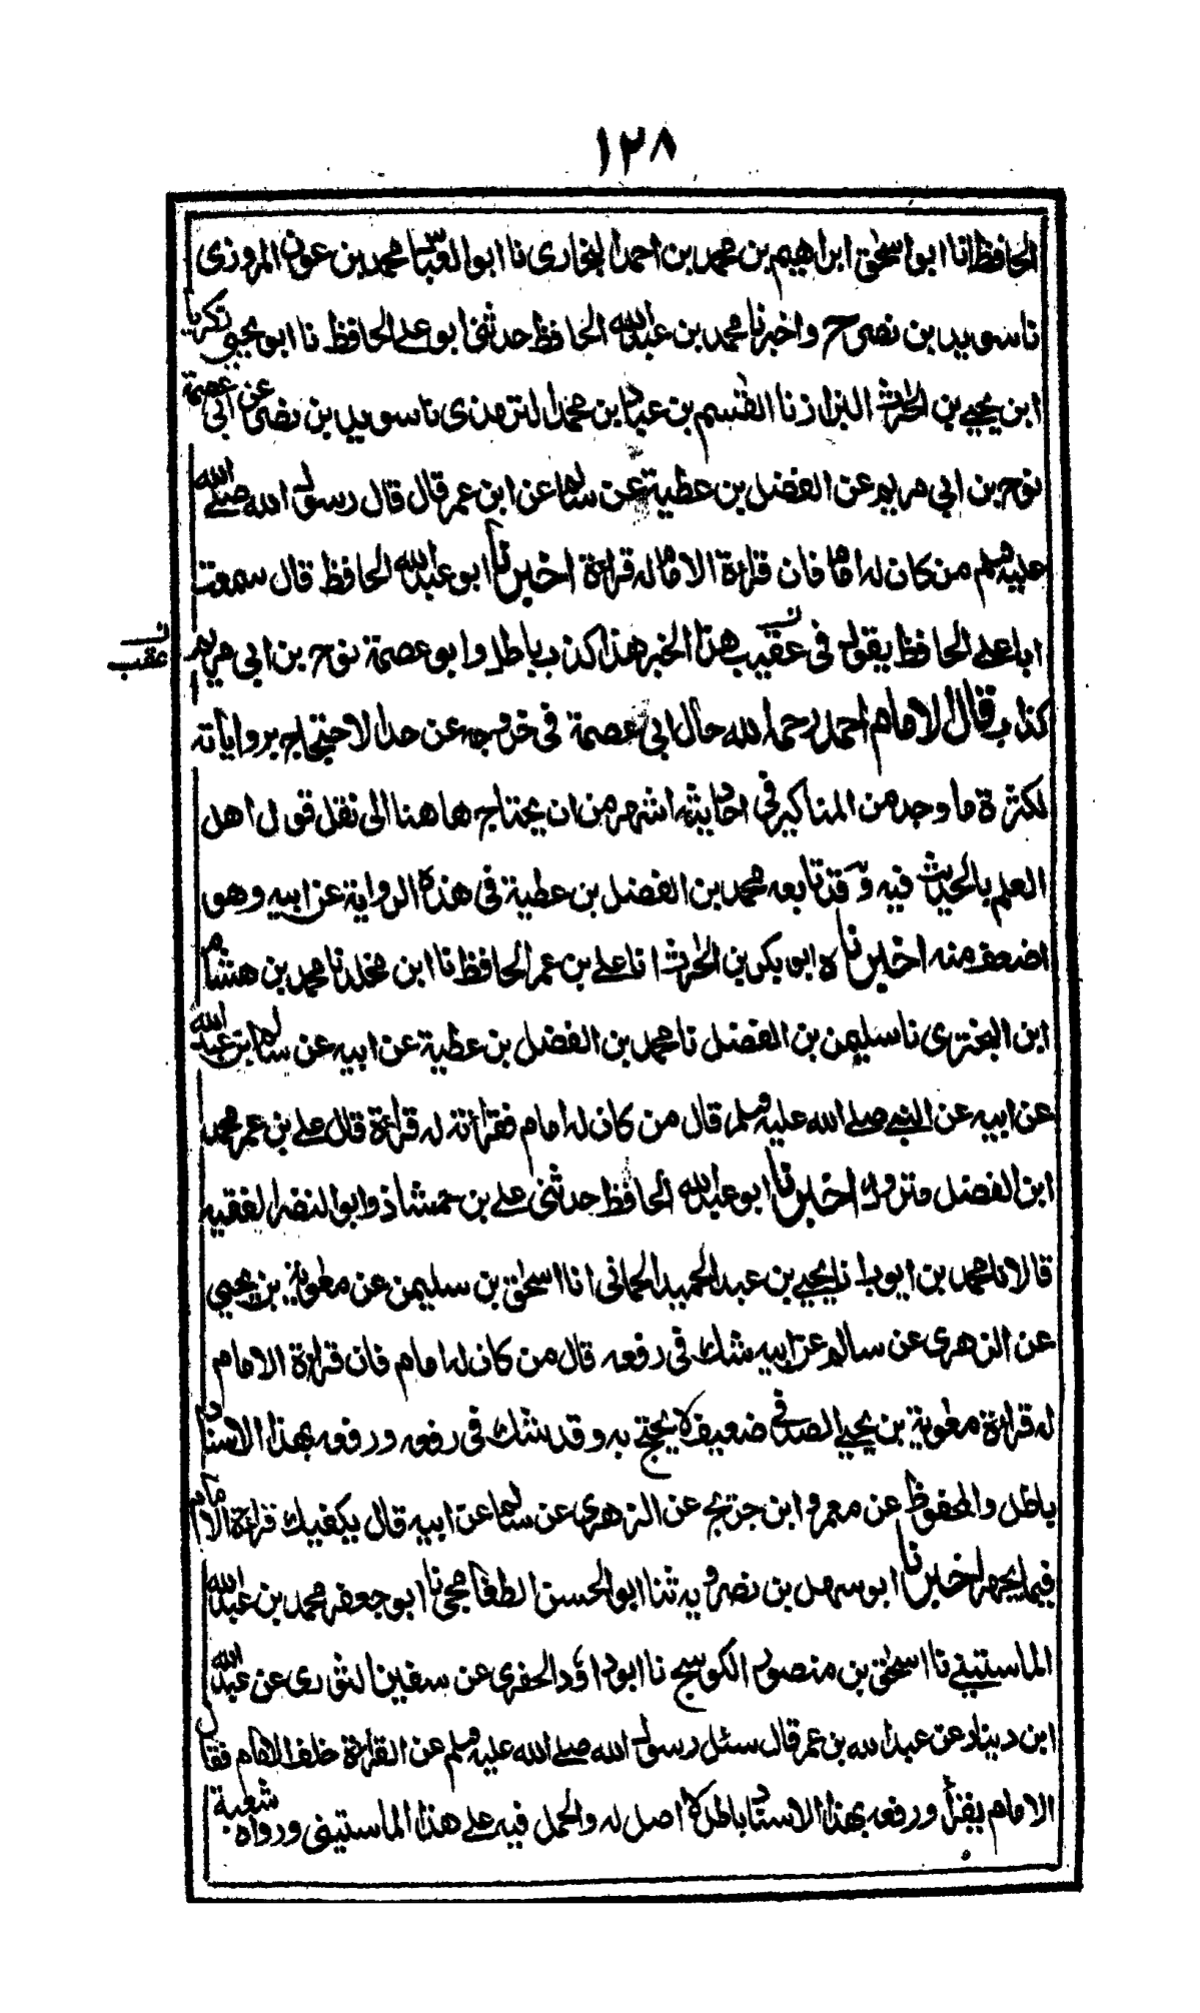 ١٢٨
الحافظ انا ابو اسحٰق ابراهيم بن محمد بن احمد البخاري نا ابو العباس محمد بن عون المروزي
نا سويد بن نصر ح واخبرنا محمد بن عبد الله الحافظ حدثني ابو علي الحافظ نا ابو يحيى زكريا
ابن يحيى بن الحارث البزاز نا القٰسم بن عباد بن محمد الترمذي نا سويد بن نصر عن ابي عصمة
نوح بن ابي مريم عن الفضل بن عطية عن سالم عن ابن عمر قال قال رسول الله صلے الله
عليه وسلم من كان له امام فان قراءة الامام له قراءة اخبرنا ابو عبد الله الحافظ قال سمعت
ابا علي الحافظ يقول في عقيب هذا الخبر هذا كذب باطل وابو عصمة نوح بن ابي مريم
عقب
كذاب قال الامام احمد رحمه الله حال ابي عصمة في خروجه عن حد الاحتجاج برواياته
لكثرة ما وجد من المناكير في احاديثه اشهر من ان يحتاج هاهنا الى نقل قول اهل
العلم بالحديث فيه وقد تابعه محمد بن الفضل بن عطية في هذه الرواية عن ابيه وهو
اضعف منه اخبرناه ابو بكر بن الحارث انا علي بن عمر الحافظ نا ابن مخلد نا محمد بن هشام
ابن البختري نا سليمٰن بن الفضل نا محمد بن الفضل بن عطية عن ابيه عن سالم بن عبد الله
عن ابيه عن النبي صلے الله عليه وسلم قال من كان له امام فقراءته له قراءة قال علي بن عمر محمد
ابن الفضل متروك اخبرنا ابو عبد الله الحافظ حدثني علي بن حمشاذ وابو النضر الفقيه
قالا نا محمد بن ايوب انا يحيى بن عبد الحميد الحماني انا اسحٰق بن سليمن عن معٰوية بن يحيى
عن الزهري عن سالم عن ابيه شك في رفعه قال من كان له امام فان قراءة الامام
له قراءة معٰوية بن يحيى الصدفي ضعيف لا يحتج به وقد شك في رفعه ورفعه بهذا الاسناد
باطل والمحفوظ عن معمر وابن جريج عن الزهري عن سالم عن ابيه قال يكفيك قراءة الامام
فيما يجهر اخبرنا ابو سهل بن نصرويه ثنا ابو الحسن الطغامجي نا ابو جعفر محمد بن عبد الله
الماستيني نا اسحٰق بن منصور الكوسج نا ابو داؤد الحفري عن سفين الثوري عن عبد الله
ابن دينار عن عبد الله بن عمر قال سئل رسول الله صلے الله عليه وسلم عن القراءة خلف الامام فقال
الامام يقرأ ورفعه بهذا الاسناد باطل لا اصل له والحمل فيه على هذا الماستيني ورواه شعبة